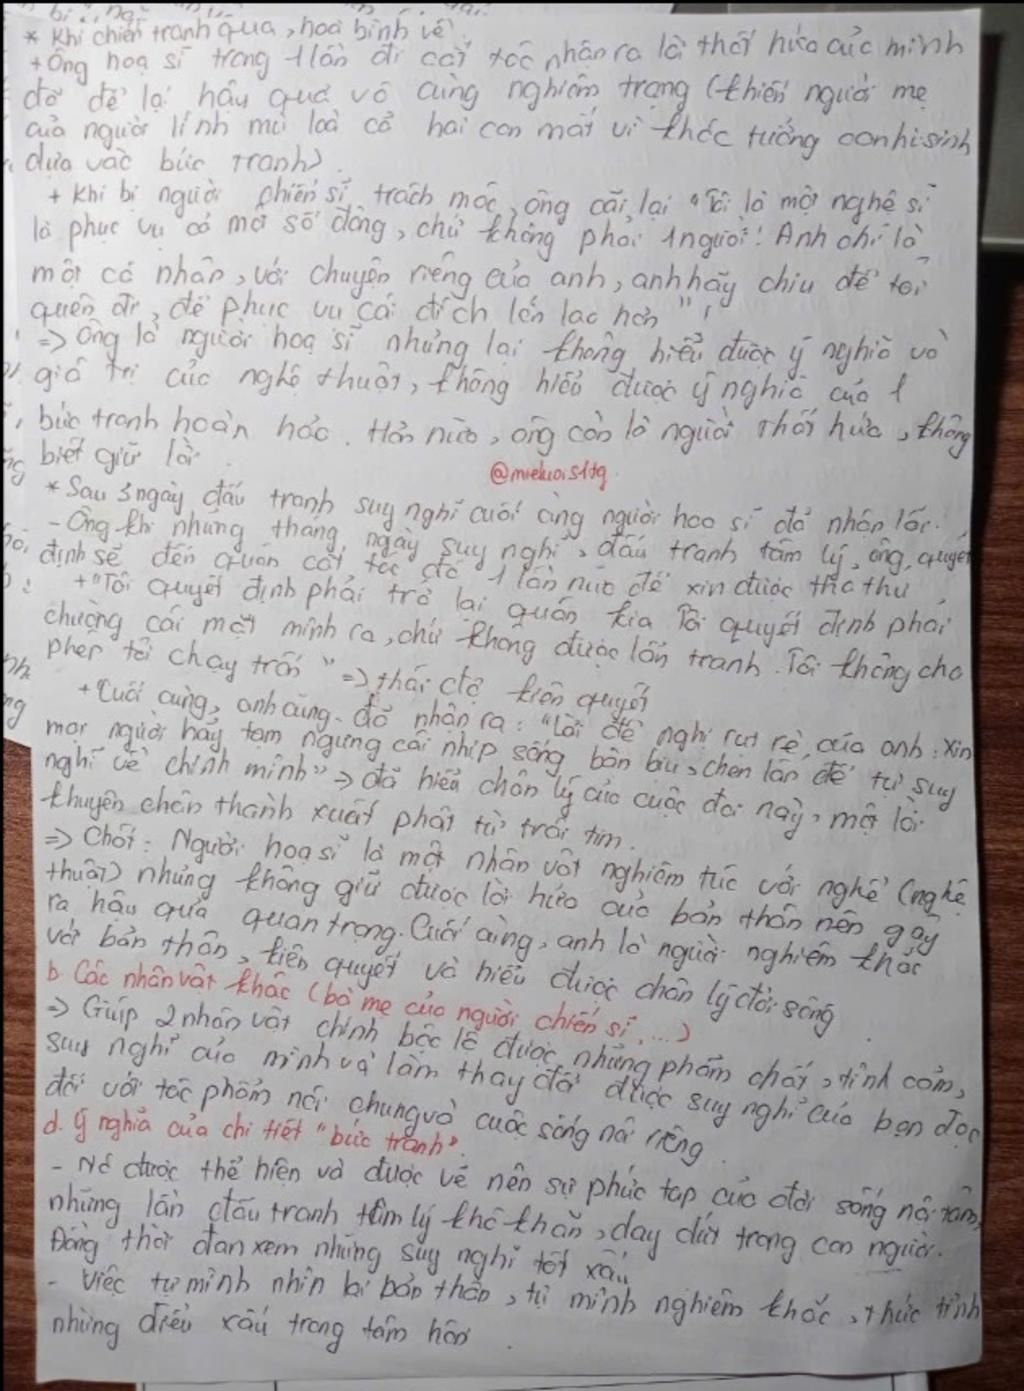 * Khi chiến tranh qua, hoà bình về
+ Ông hoạ sĩ trong 1 lần đi cắt tóc nhận ra lời thất hứa của mình
đã để lại hậu quả vô cùng nghiêm trọng (khiến người mẹ
của người lính mù loà cả hai con mắt vì khóc tưởng con hi sinh
dựa vào bức tranh)
+ Khi bị người chiến sĩ trách móc, ông cãi lại "Tôi là một nghệ sĩ
là phục vụ cả một số đông, chứ không phải 1 người! Anh chỉ là
một cá nhân, với chuyện riêng của anh, anh hãy chịu để tôi
quên đi, để phục vụ cái đích lớn lao hơn"
=> Ông là người hoạ sĩ nhưng lại không hiểu được ý nghĩa và
giá trị của nghệ thuật, không hiểu được ý nghĩa của 1
bức tranh hoàn hảo. Hơn nữa, ông còn là người thất hứa, không
biết giữ lời.
* Sau 3 ngày đấu tranh suy nghĩ cuối cùng người hoạ sĩ đã nhận lỗi.
- Ông khi những tháng ngày suy nghĩ, đấu tranh tâm lý, ông quyết
định sẽ đến quán cắt tóc đó 1 lần nữa để xin được tha thứ
+ "Tôi quyết định phải trở lại quán kia. Tôi quyết định phải
chường cái mặt mình ra, chứ không được lẩn tránh. Tôi không cho
phép tôi chạy trốn" => thái độ kiên quyết
+ Cuối cùng, anh cũng đã nhận ra: "Lời đề nghị rụt rè của anh: Xin
mọi người hãy tạm ngưng cái nhịp sống bận bịu, chen lấn để tự suy
nghĩ về chính mình" => đã hiểu chân lý của cuộc đời này, một lời
khuyên chân thành xuất phát từ trái tim.
=> Chốt: Người hoạ sĩ là một nhân vật nghiêm túc với nghề (nghệ
thuật) nhưng không giữ được lời hứa của bản thân nên gây
ra hậu quả quan trọng. Cuối cùng, anh là người nghiêm khắc
với bản thân, kiên quyết và hiểu được chân lý đời sống.
b. Các nhân vật khác (bà mẹ của người chiến sĩ, ...)
=> Giúp 2 nhân vật chính bộc lộ được những phẩm chất, tình cảm,
suy nghĩ của mình và làm thay đổi được suy nghĩ của bạn đọc
đối với tác phẩm nói chung và cuộc sống nói riêng.
d. Ý nghĩa của chi tiết "bức tranh".
- Nó được thể hiện và được vẽ nên sự phức tạp của đời sống nội tâm,
những lần đấu tranh tâm lý khó khăn, day dứt trong con người.
Đồng thời đan xem những suy nghĩ tốt xấu
- Việc tự mình nhìn lại bản thân, tự mình nghiêm khắc, thức tỉnh
những điều xấu trong tâm hồn.